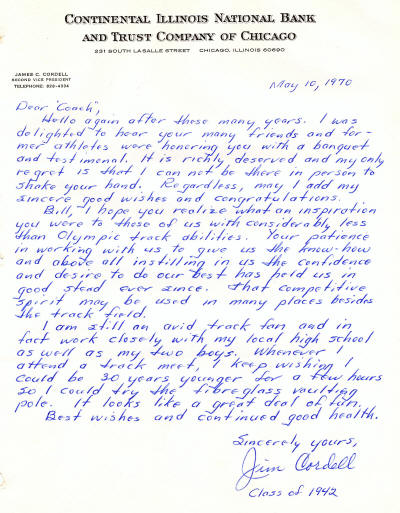 CONTINENTAL ILLINOIS NATIONAL BANK
AND TRUST COMPANY OF CHICAGO
231 SOUTH LASALLE STREET CHICAGO, ILLINOIS 60690
JAMES C. CORDELL
SECOND VICE PRESIDENT
TELEPHONE: 828-4034
May 10, 1970
Dear "Coach",
Hello again after these many years. I was
delighted to hear your many friends and for-
mer athletes were honoring you with a banquet
and testimonal. It is richly deserved and my only
regret is that I can not be there in person to
shake your hand. Regardless, may I add my
sincere good wishes and congratulations.
Bill, I hope you realize what an inspiration
you were to those of us with considerably less
than Olympic track abilities. Your patience
in working with us to give us the know-how
and above all instilling in us the confidence
and desire to do our best has held us in
good stead ever since. That competitive
spirit may be used in many places besides
the track field.
I am still an avid track fan and in
fact work closely with my local high school
as well as my two boys. Whenever I
attend a track meet, I keep wishing I
could be 30 years younger for a few hours
so I could try the fibreglass vaulting
pole. It looks like a great deal of fun.
Best wishes and continued good health.
Sincerely yours,
Jim Cordell
Class of 1942